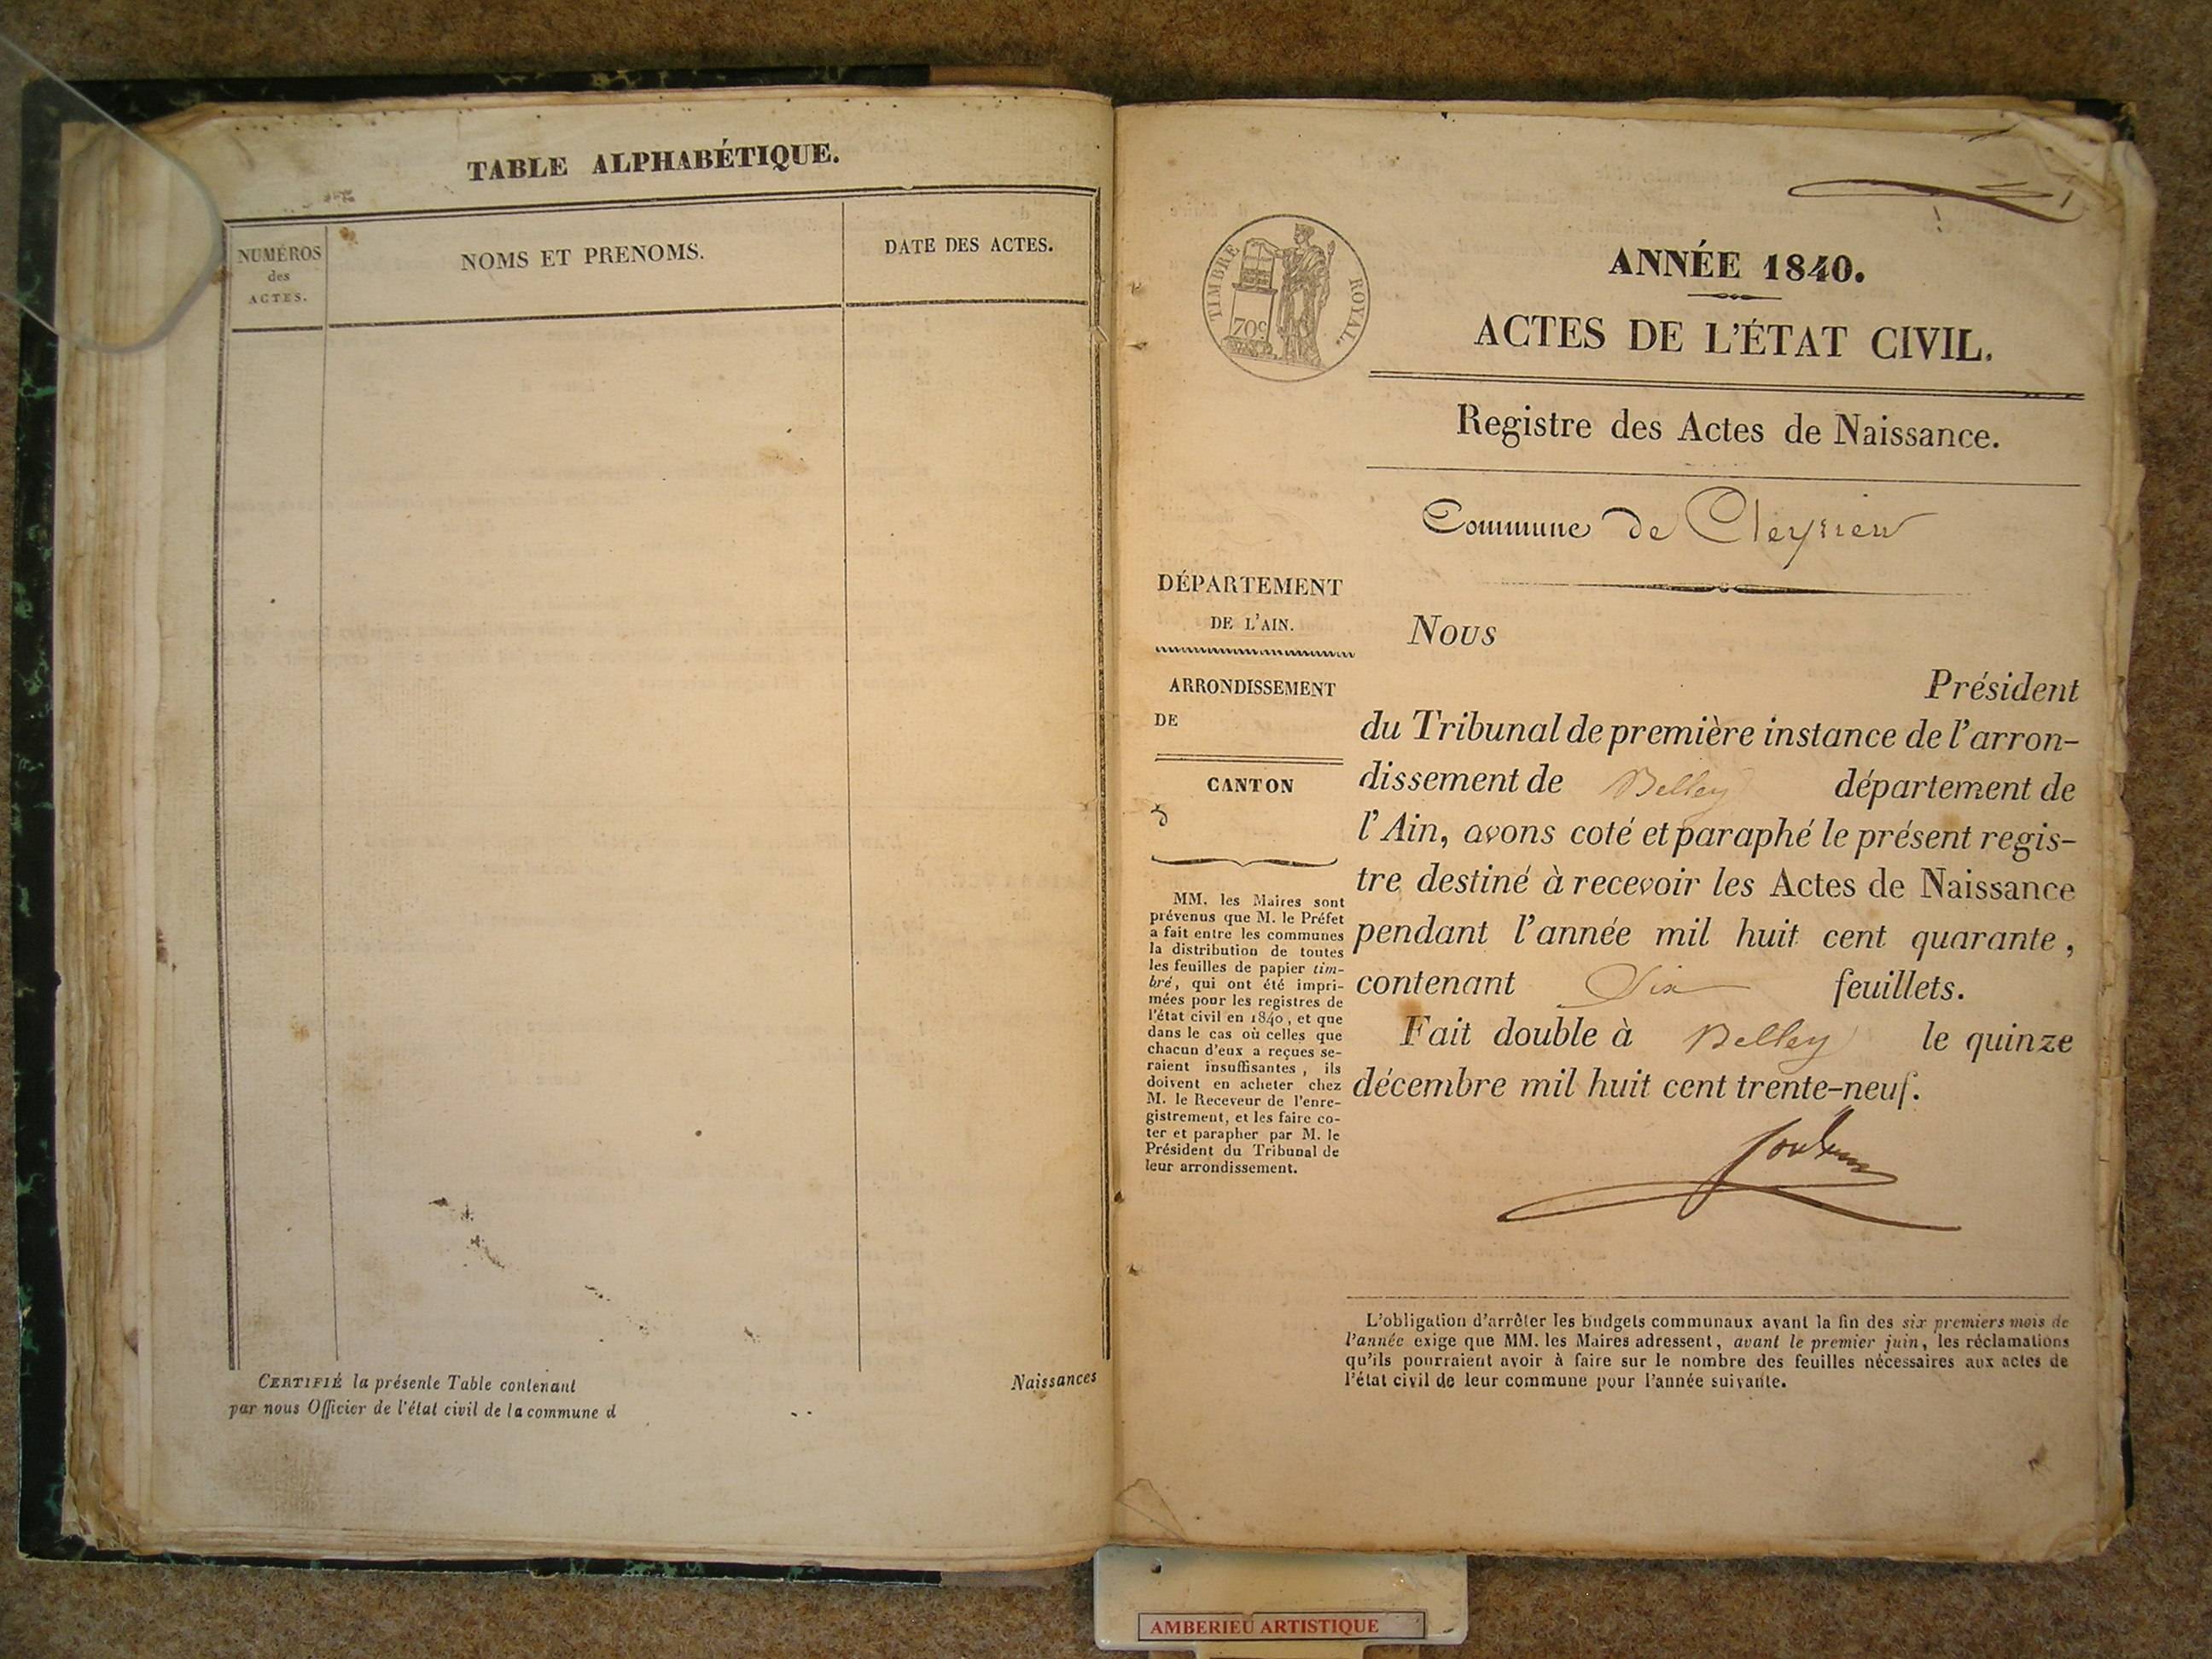 TABLE ALPHABÉTIQUE.
NUMÉROS
des
ACTES.
NOMS ET PRENOMS.
DATE DES ACTES.
CERTIFIÉ la présente Table contenant Naissances
par nous Officier de l'état civil de la commune d
TIMBRE ROYAL.
70c
1
ANNÉE 1840.
ACTES DE L'ÉTAT CIVIL.
Registre des Actes de Naissance.
Commune de Cleyzieu
DÉPARTEMENT
DE L'AIN.
ARRONDISSEMENT
DE
CANTON
d
MM. les Maires sont
prévenus que M. le Préfet
a fait entre les communes
la distribution de toutes
les feuilles de papier tim-
bré, qui ont été impri-
mées pour les registres de
l'état civil en 1840, et que
dans le cas où celles que
chacun d'eux a reçues se-
raient insuffisantes, ils
doivent en acheter chez
M. le Receveur de l'enre-
gistrement, et les faire co-
ter et parapher par M. le
Président du Tribunal de
leur arrondissement.
Nous
Président
du Tribunal de première instance de l'arron-
dissement de Belley département de
l'Ain, avons coté et paraphé le présent regis-
tre destiné à recevoir les Actes de Naissance
pendant l'année mil huit cent quarante,
contenant Six feuillets.
Fait double à Belley le quinze
décembre mil huit cent trente-neuf.
L'obligation d'arrêter les budgets communaux avant la fin des six premiers mois de
l'année exige que MM. les Maires adressent, avant le premier juin, les réclamations
qu'ils pourraient avoir à faire sur le nombre des feuilles nécessaires aux actes de
l'état civil de leur commune pour l'année suivante.
AMBERIEU ARTISTIQUE